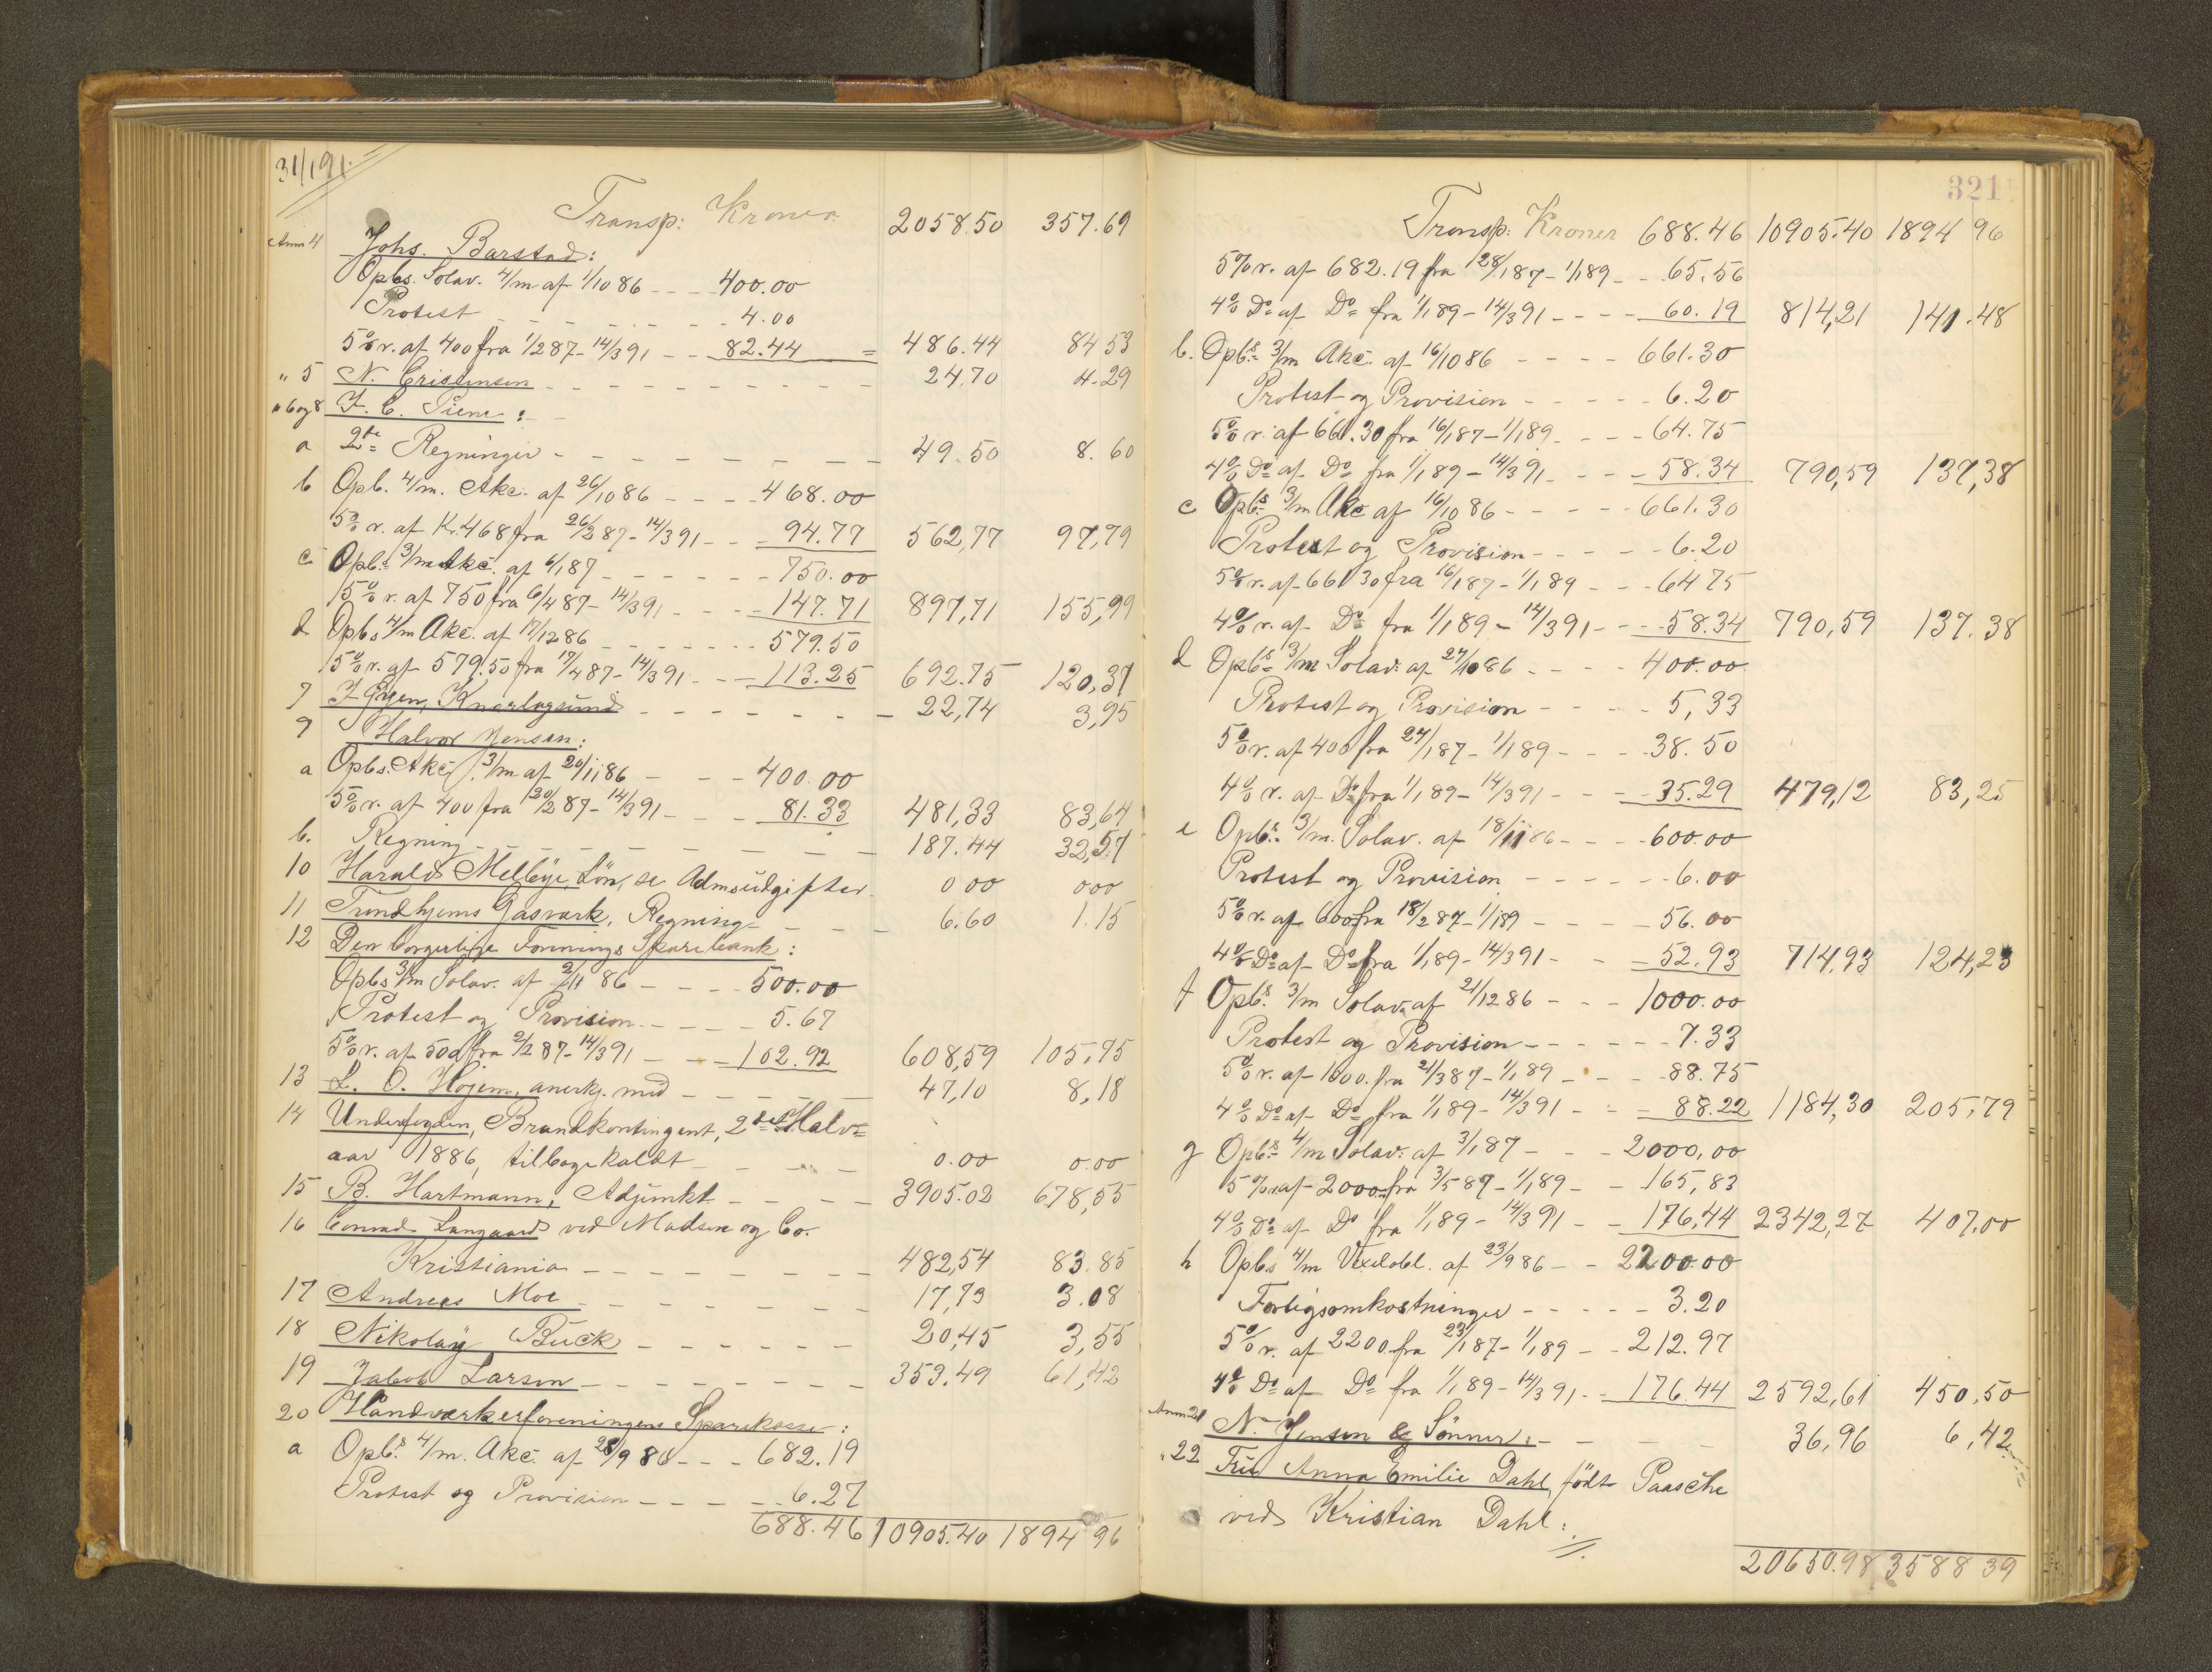 31/1 91.
Transp: Kroner 2058.50 357.69
Anm 4 Johs. Barstad:
Opbs. Solav. 4/m af 1/10 86 - - - 400.00
Protest - - - - - - 4.00
5% r. af 400 fra 1/2 87 - 14/3 91 - - 82.44 = 486.44 84 53
" 5 N. Cristensen - - - - - - - - - 24.70 4.29
" 6 og 8 F. C. Piene: -
a 2de Regninger - - - - - - - - 49.50 8.60
b Opb. 4/m. Akc. af 26/10 86 - - - - 468.00
5% r. af Kr. 468 fra 26/2 87 - 14/3 91 - - - 94.77 562,77 97,79
c Opb.s 3/m Akc. af 6/1 87 - - - - - - - 750.00
5% r. af 750 fra 6/4 87 - 14/3 91 - - - - 147.71 897,71 155,99
d Opbs 4/m Akc. af 17/12 86 - - - - - - - 579.50
5% r. af 579.50 fra 17/4 87 - 14/3 91 - - - 113.25 692.75 120,37
7 Knarlagsund - - - - - - - 22,74 3,95
9 Halvor Jensen:
a Opbs. Akc. 3/m af 20/11 86 - - - 400.00
5% r. af 400 fra 20/2 87 - 14/3 91 - - - 81.33 481,33 83,64
b. Regning - - - - - - - - - 187.44 32,57
10 Harald Melbye, Løn, se Admsudgifter. 0 00 0 00
11 Trondhjems Gasværk, Regning - - - - 6.60 1.15
12 Den borgerlige Forenings Sparebank:
Opbs 3/m Solav. af 2/11 86 - - - - 500.00
Protest og Provision - - - - - 5.67
5% r. af 500 fra 2/2 87 - 14/3 91 - - - 102.92 608,59 105,75
13 L. O. Hojem, anerkj. med - - - - - 47,10 8,18
14 Underfogden, Brandkontingent, 2det Halv=
aar 1886, tilbagekaldt - - - - 0.00 0.00
15 B. Hartmann, Adjunkt - - - - 3905.02 678,55
16 Conrad Langaard ved Madsen og Co.
Kristiania - - - - - - - 482,54 83.85
17 Andreas Moe - - - - - - - - 17,73 3.08
18 Nikolay Buck - - - - - - 20,45 3,55
19 Jakob Larsen - - - - - - - - 353.49 61,42
20 Handværkerforeningens Sparekasse:
a Opb.s 4/m. Akc. af 28/9 86 - - - 682.19
Protest og Provision - - - - - 6.27
688.46 10905.40 1894 96
321
Transp: Kroner 688.46 10905.40 1894 96
5% r. af 682.19 fra 28/1 87 - 1/1 89 - - 65.56
4% Do af Do fra 1/1 89 - 14/3 91 - - - - 60.19 814,21 141.48
b. Opb.s 3/m Akc. af 16/10 86 - - - - 661.30
Protest og Provision - - - - - 6.20
5% r. af 661.30 fra 16/1 87 - 1/1 89 - - - 64.75
4% Do af Do fra 1/1 89 - 14/3 91 - - - 58.34 790,59 137,38
c Opb.s 3/m Akc af 16/10 86 - - - - - 661.30
Protest og Provision - - - - - 6.20
5% r. af 661 30 fra 16/1 87 - 1/1 89 - - - 64 75
4% r. af Do fra 1/1 89 - 14/3 91 - - - 58.34 790,59 137.38
d Opb.s 3/m Solav. af 24/10 86 - - - - 400.00
Protest og Provision - - - - 5,33
5% r. af 400 fra 24/1 87 - 1/1 89 - - - - 38.50
4% r. af Do fra 1/1 89 - 14/3 91 - - - 35.29 479,12 83,25
e Opb.s 3/m. Solav. af 18/11 86 - - - - 600.00
Protest og Provision - - - - - - 6.00
5% r. af 600 fra 18/2 87 - 1/1 89 - - - - 56.00
4% Do af Do fra 1/1 89 - 14/3 91 - - - 52.93 714,93 124,23
f Opb.s 3/m Solav. af 21/12 86 - - - 1000.00
Protest og Provision - - - - - - 7.33
5% r. af 1000. fra 21/3 87 - 1/1 89 - - - 88.75
4% Do af Do fra 1/1 89 - 14/3 91 - - - 88.22 1184,30 205,79
g Opb.s 4/m Solav. af 3/1 87 - - - 2000,00
5% r. af 2000 fra 3/5 87 - 1/1 89 - - 165,83
4% Do af Do fra 1/1 89 - 14/3 91 - - 176,44 2342,27 407,00
h Opb.s 4/m Vexelobl. af 23/9 86 - - 2200.00
Forligsomkostninger - - - - - 3.20
5% r. af 2200 fra 23/1 87 - 1/1 89 - - 212.97
4% Do af Do fra 1/1 89 - 14/3 91 - - 176.44 2592,61 450,50
Anm 21 N. Jensen & Sønner: - - - - 36,96 6,42
" 22 Fru Anna Emilie Dahl, født Paasche
ved Kristian Dahl:
20650.98 3588 39